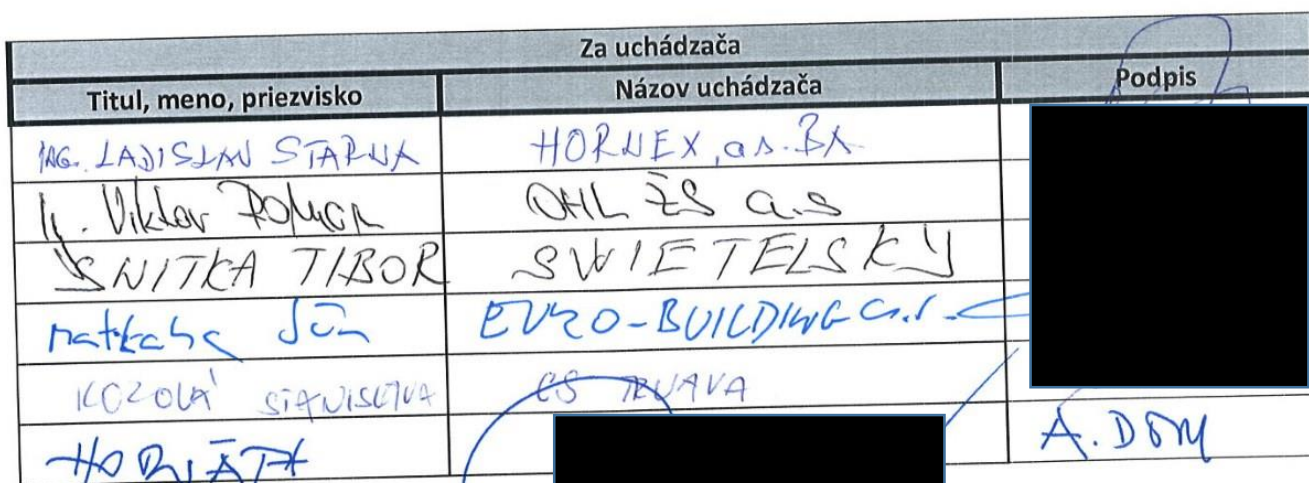 Za uchádzača
Titul, meno, priezvisko Názov uchádzača Podpis
ING. LADISLAV STARNA HORNEX, a.s. BA
Viktor OHL ŽS a.s
SNITKA TIBOR SWIETELSKY
Ján EURO-BUILDING a.s.
KOZOLÁ STANISLAVA CS TRNAVA
HORVÁTH A. DOM